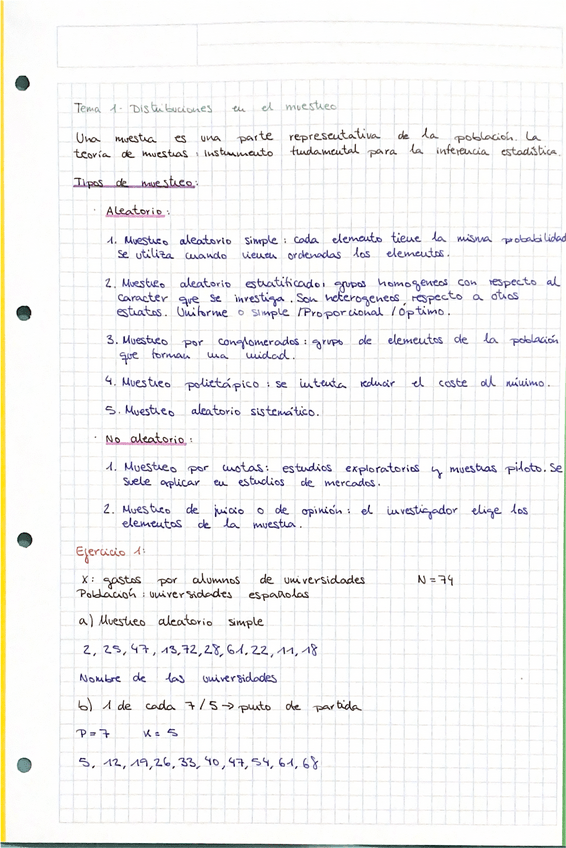 Tema 1. Distribuciones en el muestreo
Una muestra es una parte representativa de la población. La
teoría de muestras: instrumento fundamental para la inferencia estadística.
Tipos de muestreo:
· Aleatorio:
1. Muestreo aleatorio simple: cada elemento tiene la misma probabilidad
Se utiliza cuando vienen ordenados los elementos.
2. Muestreo aleatorio estratificado: grupos homogeneos con respecto al
caracter que se investiga. Son heterogeneos respecto a otros
estratos. Uniforme o simple /Proporcional / Óptimo.
3. Muestreo por conglomerados: grupo de elementos de la población
que forman una unidad.
4. Muestreo polietápico: se intenta reducir el coste al mínimo.
5. Muestreo aleatorio sistemático.
· No aleatorio:
1. Muestreo por cuotas: estudios exploratorios y muestras piloto. Se
suele aplicar en estudios de mercados.
2. Muestreo de juicio o de opinión: el investigador elige los
elementos de la muestra.
Ejercicio 1:
X: gastos por alumnos de universidades N=74
Población: universidades españolas
a) Muestreo aleatorio simple
2, 25, 47, 13, 72, 28, 61, 22, 11, 18
Nombre de las universidades
b) 1 de cada 7/5 → punto de partida
P=7 K=5
5, 12, 19, 26, 33, 40, 47, 54, 61, 68